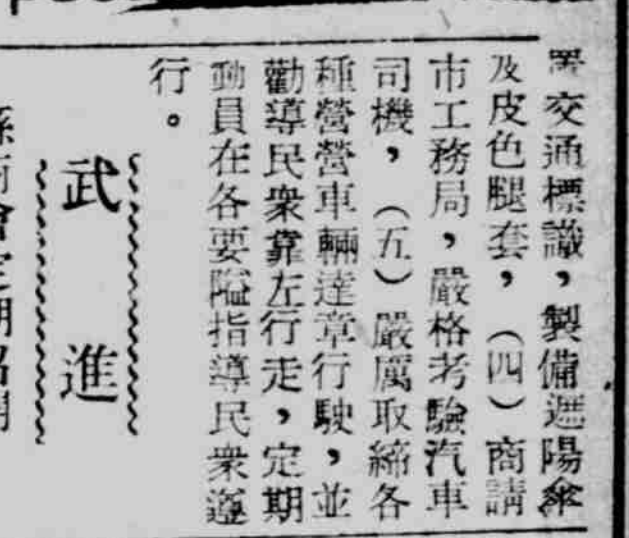 交通標識，製備遮陽傘
及皮色腿套，（四）商請
市工務局，嚴格考驗汽車
司機，（五）嚴厲取締各
種營營車輛違章行駛，並
勸導民衆靠左行走，定期
動員在各要隘指導民衆遵
行。
武進